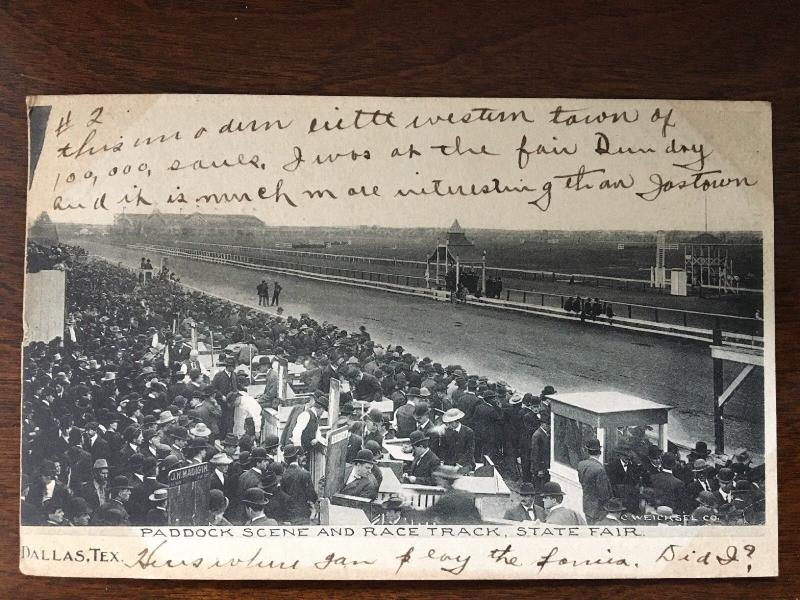 # 2
this modern little western town of
100,000, souls. I was at the fair Sunday
and it is much more interesting than Jastown
J.H. MADIGIN
C. WEICHSEL CO.
PADDOCK SCENE AND RACE TRACK, STATE FAIR.
DALLAS, TEX. Heres where Ian play the fonies. Did I?